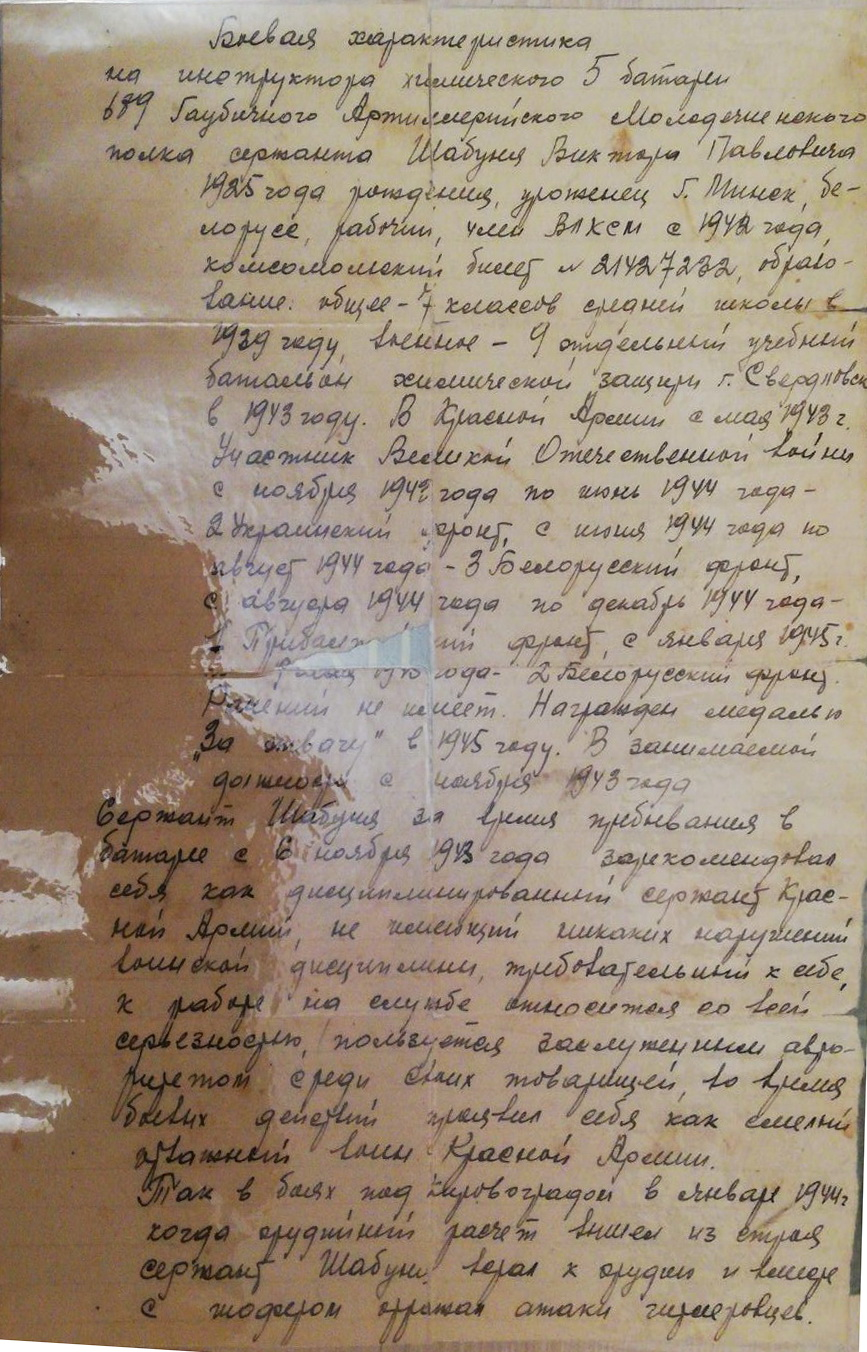 Боевая характеристика
на инструктора химического 5 батареи
689 Гаубичного Артиллерийского Молодечненского
полка сержанта Шабуня Виктора Павловича
1925 года рождения, уроженец г. Минск, бе-
лорусс, рабочий, член ВЛКСМ с 1942 года,
комсомольский билет № 21427232, образо-
вание: общее - 7 классов средней школы в
1939 году, военное - 9 отдельный учебный
батальон химической защиты г. Свердловск
в 1943 году. В Красной Армии с мая 1943 г.
Участник Великой Отечественной войны
с ноября года по июнь 1944 года -
2 Украинский фронт, с июня 1944 года по
август 1944 года - 3 Белорусский фронт,
с августа 1944 года по декабрь 1944 года -
фронт, с января 1945 г.
года - 2 Белорусский фронт.
Ранений не имеет. Награжден медалью
„За отвагу" в 1945 году. В занимаемой
должности с ноября 1943 года
Сержант Шабуня за время пребывания в
батарее с 6 ноября 1943 года зарекомендовал
себя как дисциплинированный сержант Крас-
ной Армии, не имеющий никаких нарушений
воинской дисциплины, требовательный к себе,
к работе на службе относится со всей
серьезностью, пользуется заслуженным авто-
ритетом среди своих товарищей, во время
боевых действий проявил себя как смелый
отважный воин Красной Армии.
Так в боях под Кировоградом в январе 1944 г
когда орудийный расчет вышел из строя
сержант Шабуня встал к орудию и вместе
с шофером отражал атаки гитлеровцев.